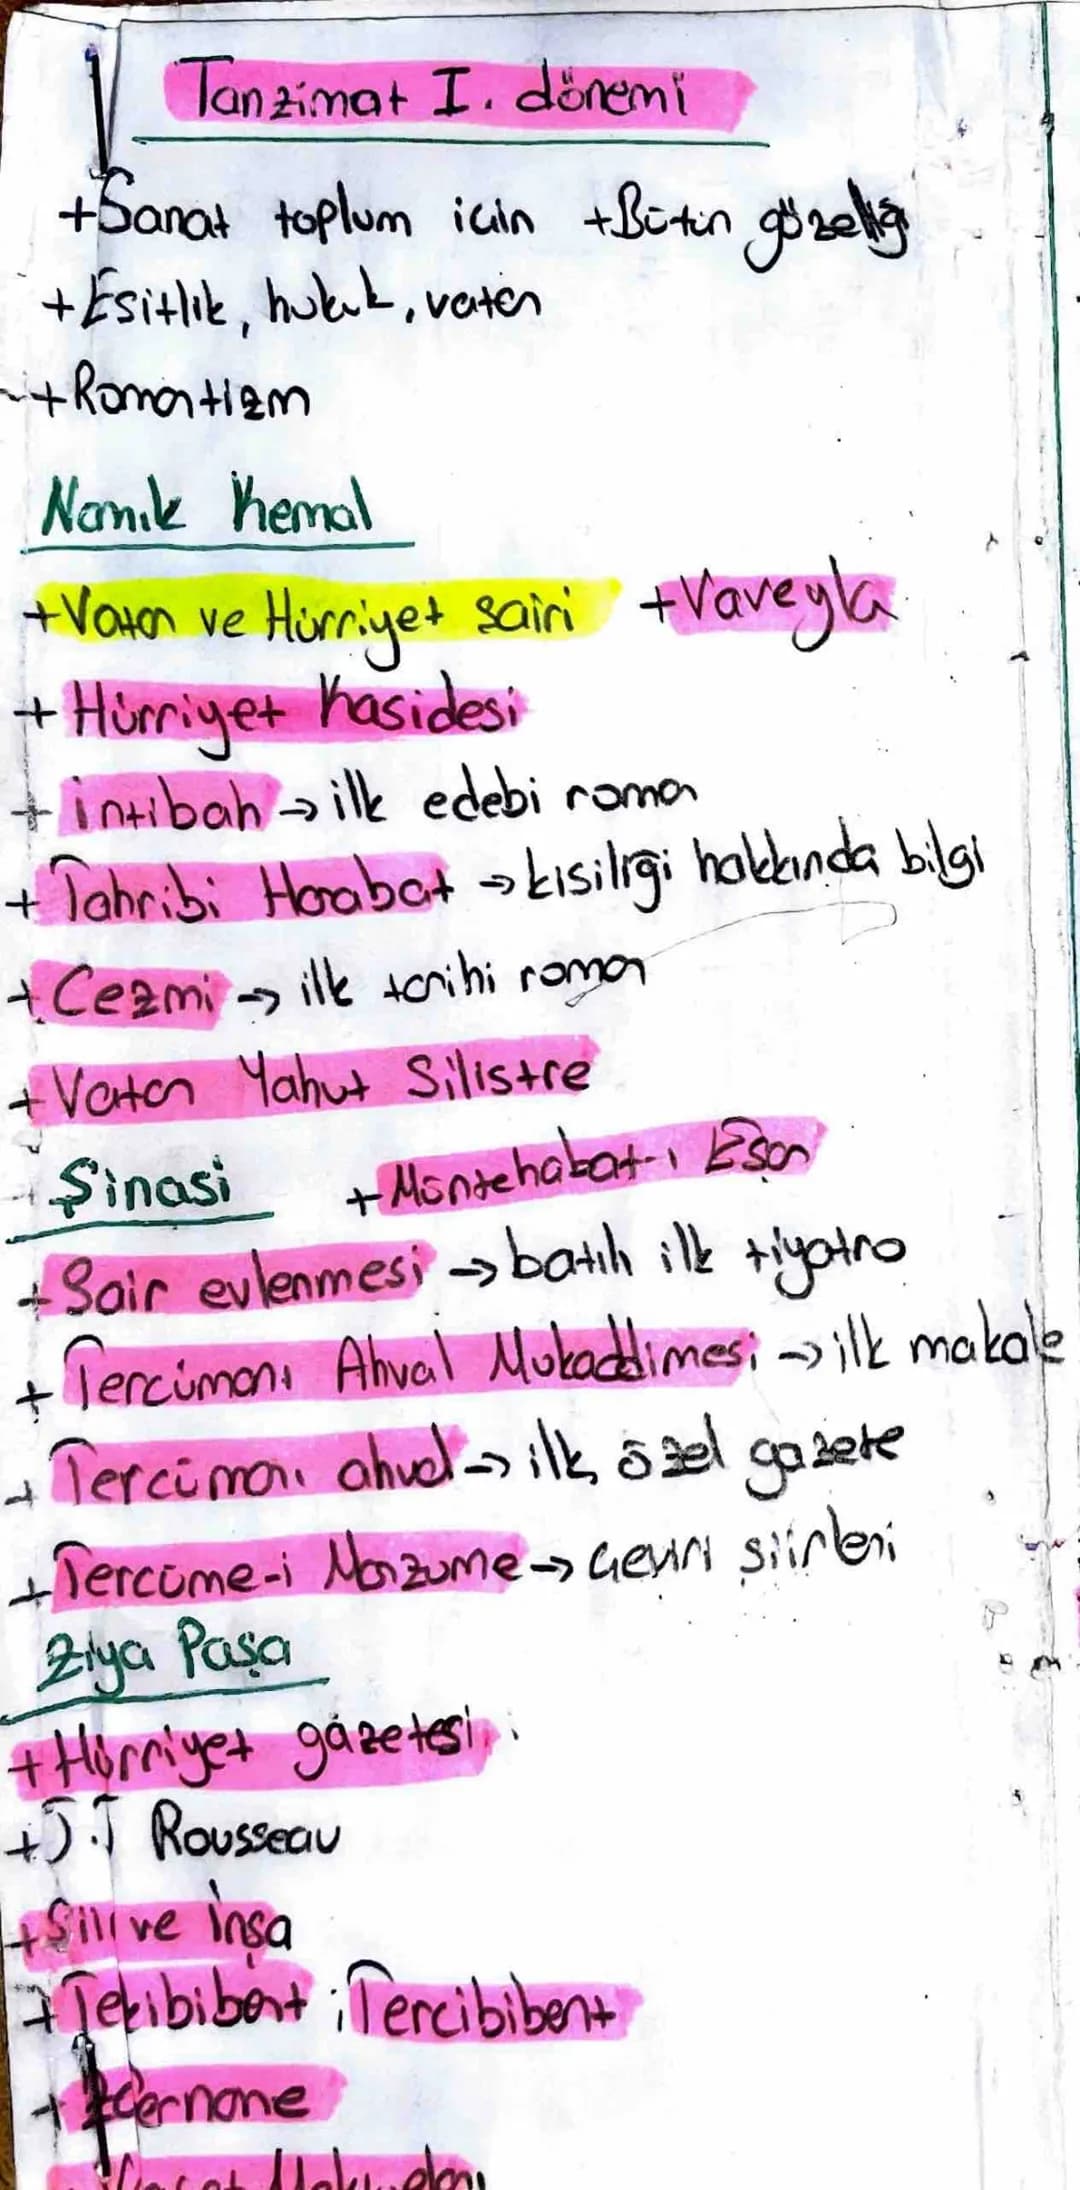 Tanzimat I. dönemi
+Sanat toplum için +Bütün güzelliği
+Esitlik, hukuk, vatan
+Romantizm
Namık Kemal
+Vatan ve Hürriyet sairi +Vaveyla
+ Hürriyet Kasidesi
+ intibah → ilk edebi roman
+ Tahribi Harabat → kisiliği hakkında bilgi
+ Cezmi → ilk tarihi roman
+ Vatan Yahut Silistre
Şinasi + Müntehabat-ı Eşar
+ Sair evlenmesi → batılı ilk tiyatro
+ Tercümanı Ahval Mukaddimesi → ilk makale
+ Tercümanı ahval → ilk özel gazete
+ Tercüme-i Manzume → Çeviri şiirleri
Ziya Paşa
+ Hürriyet gazetesi
+ J.J Rousseau
+ ve İnşa
+ Tekibibent ; Tercibibent
+ Zafername